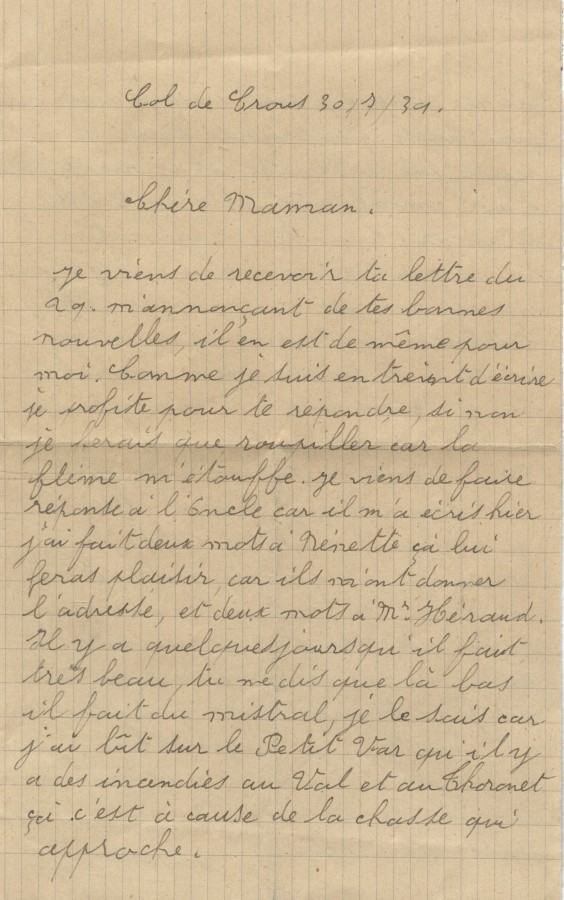 Col de Crous 30/7/39.
Chère Maman.
Je viens de recevoir ta lettre du
29. m'annonçant de tes bonnes
nouvelles, il en est de même pour
moi. Comme je suis en treint d'écrire
je profite pour te répondre, si non
je ferais que roupiller car la
flème m'étouffe. Je viens de faire
réponse à l'Oncle car il m'a écris hier
j'ai fait deux mots à Nénette çà lui
feras plaisir, car ils m'ont donner
l'adresse, et deux mots à Mr Héraud.
Il y a quelques jours qu'il fait
très beau, tu me dis que là bas
il fait du mistral, je le sais car
j'ai lût sur le Petit Var qu'il y
a des incendiés au Val et au Thoronet
çà c'est à cause de la chasse qui
approche.